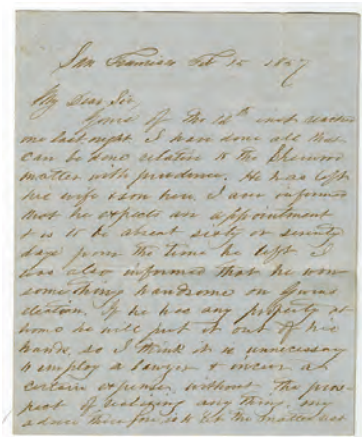 San Francisco Feb 15 1857
My Dear Sir
Yours of the 14th inst reached
me last night I have done all that
can be done relative to the
matter with prudence. He has left
his wife & son here. I am informed
that he expects an appointment
& is to be absent sixty or seventy
days from the time he left I
was also informed that he won
something handsome on
election. If he has any property at
home he will put it out of his
hands, so I think it is unnecessary
to employ a lawyer & incur a
certain expense without the pros-
pect of realizing any thing. my
advice therefore is to let the matter rest